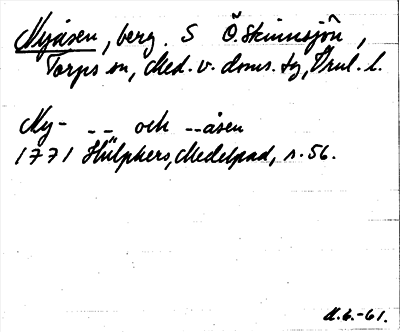 Nyåsen, berg. S Ö. Skinnsjön,
Torps sn, Med. v. doms. tg, Vrnl. l.
Ny- -- och --åsen
1771 Hülphers, Medelpad, s. 56.
d.6.-61.